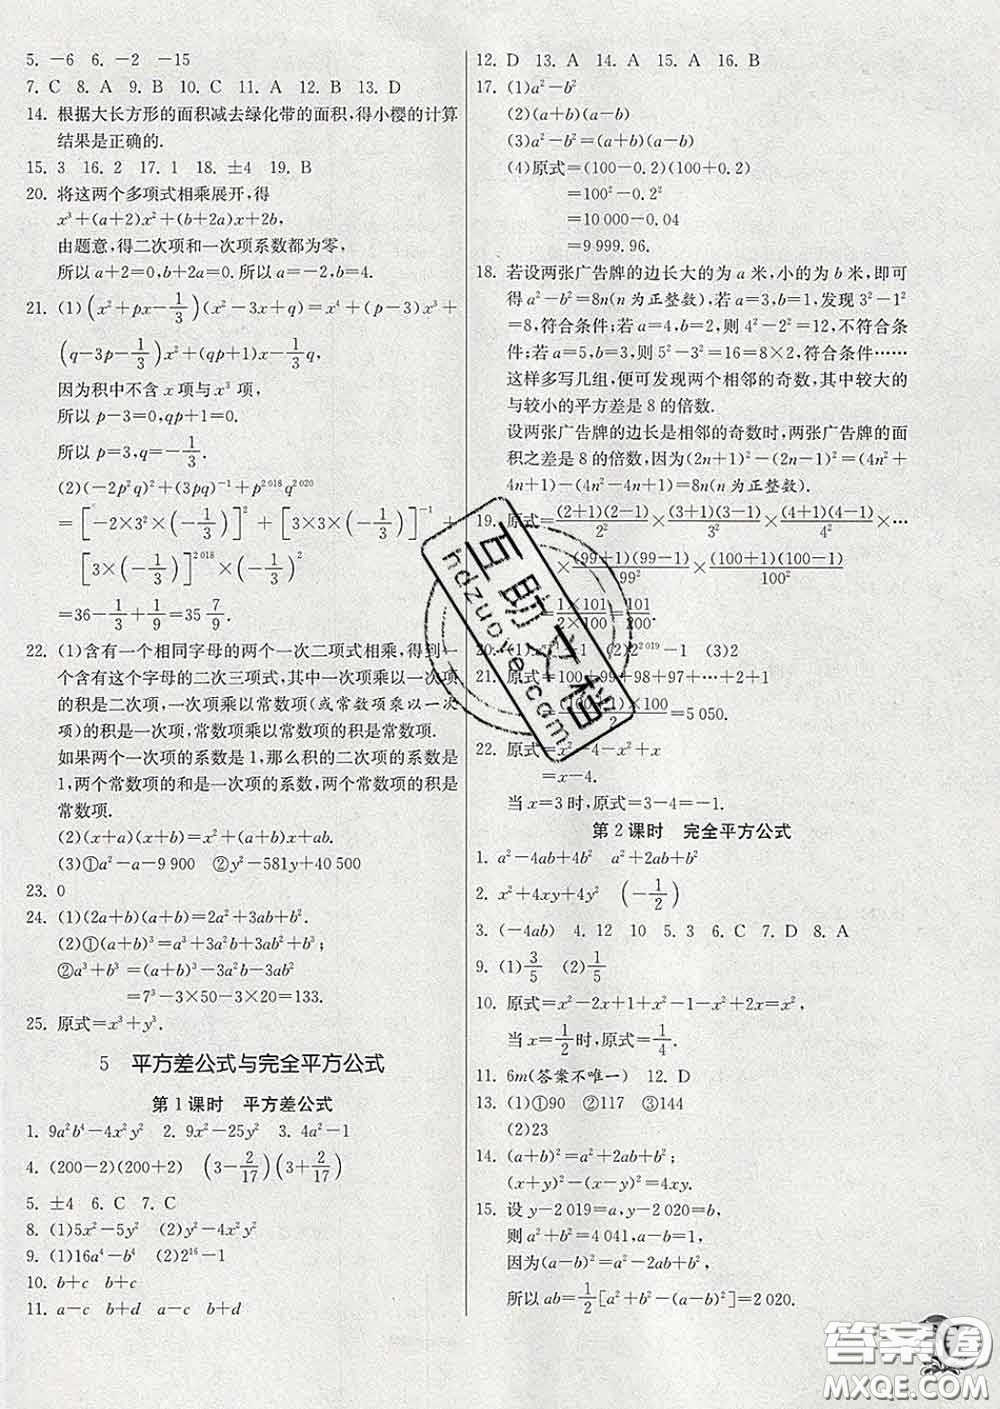 5. －6　6. －2　－15
7. C　8. A　9. B　10. C　11. A　12. B　13. D
14. 根据大长方形的面积减去绿化带的面积,得小樱的计算
结果是正确的.
15. 3　16. 2　17. 1　18. ±4　19. B
20. 将这两个多项式相乘展开,得
x³＋(a＋2)x²＋(b＋2a)x＋2b,
由题意,得二次项和一次项系数都为零,
所以 a＋2＝0,b＋2a＝0.所以 a＝－2,b＝4.
21. (1)(x²＋px－1/3)(x²－3x＋q)＝x⁴＋(p－3)x³＋
(q－3p－1/3)x²＋(qp＋1)x－1/3q,
因为积中不含 x 项与 x³ 项,
所以 p－3＝0,qp＋1＝0.
所以 p＝3,q＝－1/3.
(2)(－2p²q)²＋(3pq)⁻¹＋p²⁰¹⁸q²⁰²⁰
＝[－2×3²×(－1/3)]²＋[3×3×(－1/3)]⁻¹＋
[3×(－1/3)]²⁰¹⁸×(－1/3)²
＝36－1/3＋1/9＝35 7/9.
22. (1)含有一个相同字母的两个一次二项式相乘,得到一
个含有这个字母的二次三项式,其中一次项乘以一次项
的积是二次项,一次项乘以常数项(或常数项乘以一次
项)的积是一次项,常数项乘以常数项的积是常数项.
如果两个一次项的系数是 1,那么积的二次项的系数是
1,两个常数项的和是一次项的系数,两个常数项的积是
常数项.
(2)(x＋a)(x＋b)＝x²＋(a＋b)x＋ab.
(3)①a²－a－9 900　②y²－581y＋40 500
23. 0
24. (1)(2a＋b)(a＋b)＝2a²＋3ab＋b².
(2)①(a＋b)³＝a³＋3a²b＋3ab²＋b³;
②a³＋b³＝(a＋b)³－3a²b－3ab²
＝7³－3×50－3×20＝133.
25. 原式＝x³＋y³.
5　平方差公式与完全平方公式
第 1 课时　平方差公式
1. 9a²b⁴－4x²y²　2. 9x²－25y²　3. 4a²－1
4. (200－2)(200＋2)　(3－2/17)(3＋2/17)
5. ±4　6. C　7. C
8. (1)5x²－5y²　(2)y²－4x²y²
9. (1)16a⁴－b⁴　(2)2¹⁶－1
10. b＋c　b＋c
11. a－c　b＋d　a－c　b＋d
12. D　13. A　14. A　15. A　16. B
17. (1)a²－b²
(2)(a＋b)(a－b)
(3)a²－b²＝(a＋b)(a－b)
(4)原式＝(100－0.2)(100＋0.2)
＝100²－0.2²
＝10 000－0.04
＝9 999.96.
18. 若设两张广告牌的边长大的为 a 米,小的为 b 米,即可
得 a²－b²＝8n(n 为正整数),若 a＝3,b＝1,发现 3²－1²
＝8,符合条件;若 a＝4,b＝2,则 4²－2²＝12,不符合条
件;若 a＝5,b＝3,则 5²－3²＝16＝8×2,符合条件……
这样多写几组,便可发现两个相邻的奇数,其中较大的
与较小的平方差是 8 的倍数.
设两张广告牌的边长是相邻的奇数时,两张广告牌的面
积之差是 8 的倍数,因为(2n＋1)²－(2n－1)²＝(4n²＋
4n＋1)－(4n²－4n＋1)＝8n(n 为正整数).
19. 原式＝(2＋1)(2－1)/2²×(3＋1)(3－1)/3²×(4＋1)(4－1)/4²×…
×(99＋1)(99－1)/99²×(100＋1)(100－1)/100²
1×101/2×100＝101/200.
20. (1)－1　(2)2²⁰¹⁹－1　(3)2
21. 原式＝100＋99＋98＋97＋…＋2＋1
(100＋1)×100/2＝5 050.
22. 原式＝x²－4－x²＋x
＝x－4.
当 x＝3 时,原式＝3－4＝－1.
第 2 课时　完全平方公式
1. a²－4ab＋4b²　a²＋2ab＋b²
2. x²＋4xy＋4y²　(－1/2)
3. (－4ab)　4. 12　10　5. 3　6. C　7. D　8. A
9. (1)3/5　(2)1/5
10. 原式＝x²－2x＋1＋x²－1－x²＋2x＝x²,
当 x＝1/2时,原式＝1/4.
11. 6m(答案不唯一)　12. D
13. (1)①90　②117　③144
(2)23
14. (a＋b)²＝a²＋2ab＋b²;
(x＋y)²－(x－y)²＝4xy.
15. 设 y－2 019＝a,y－2 020＝b,
则 a²＋b²＝4 041,a－b＝1,
因为(a－b)²＝a²－2ab＋b²,
所以 ab＝1/2[a²＋b²－(a－b)²]＝2 020.
互助文档
hdzuoye.com
答案圈
MXQE.COM